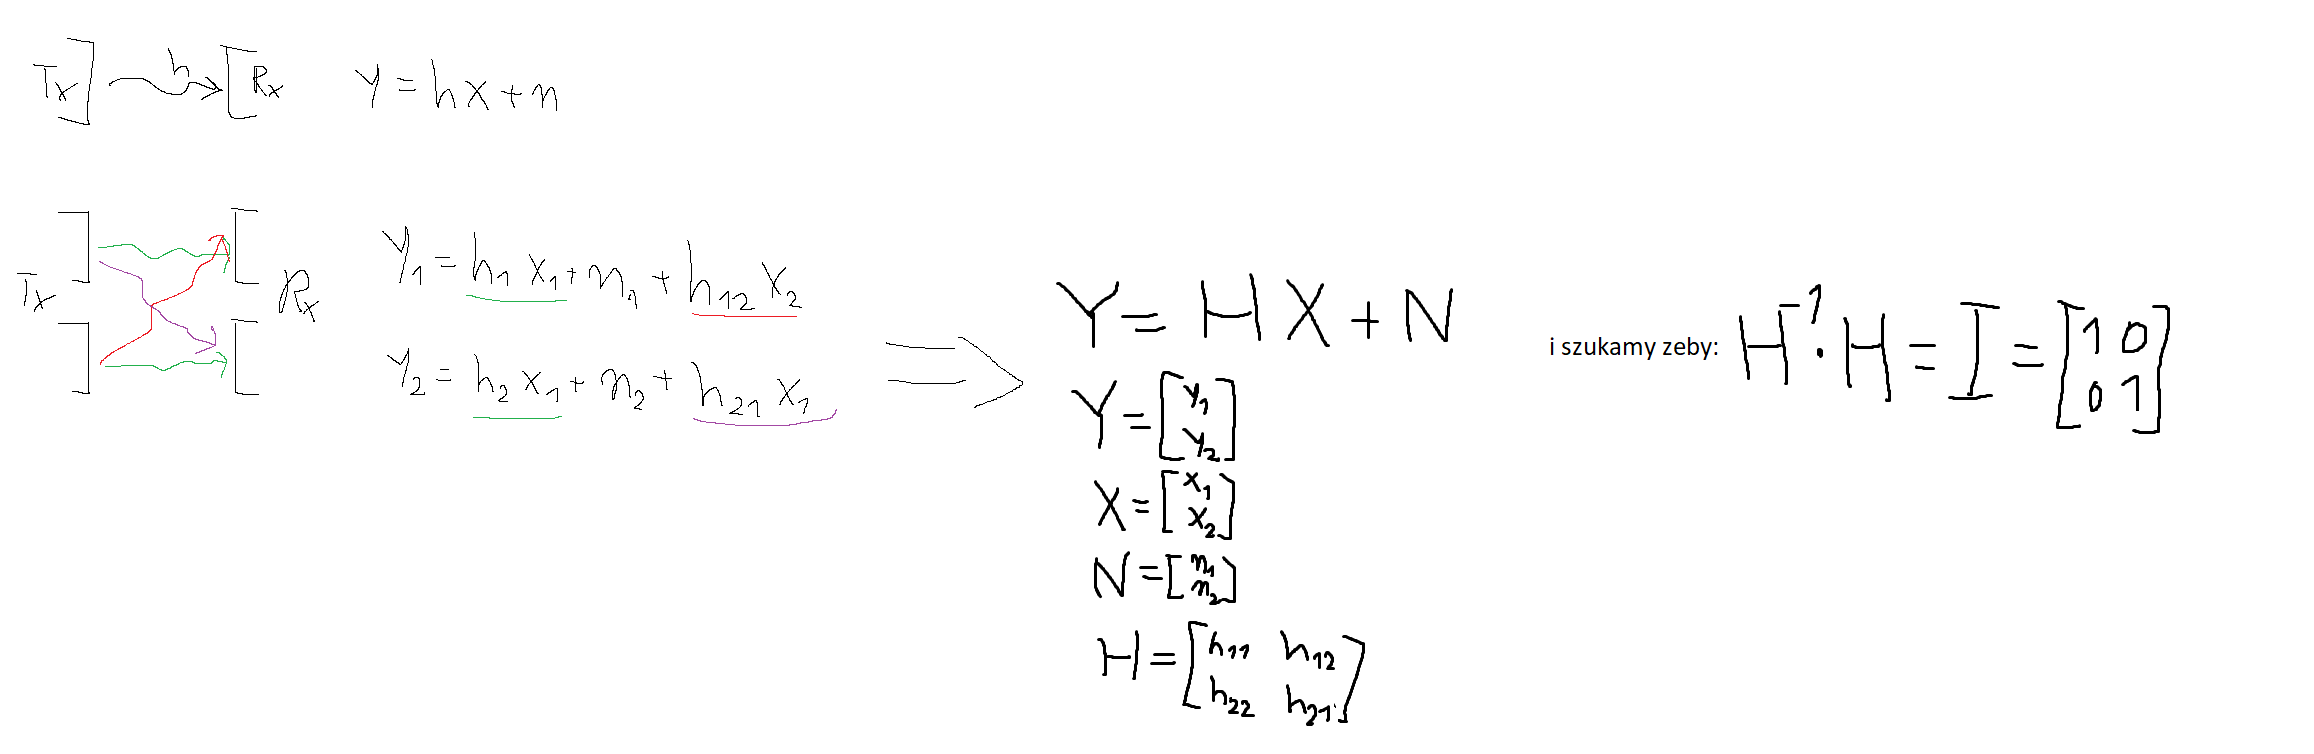 Tx h Rx Y = hX + n
Tx Rx
Y₁ = h₁ X₁ + n₁ + h₁₂ X₂
Y₂ = h₂ X₁ + n₂ + h₂₁ X₁
Y = H X + N
Y = [y₁ y₂]
X = [x₁ x₂]
N = [n₁ n₂]
H = [h₁₁ h₁₂
h₂₂ h₂₁]
i szukamy zeby: H⁻¹ · H = I = [1 0
0 1]